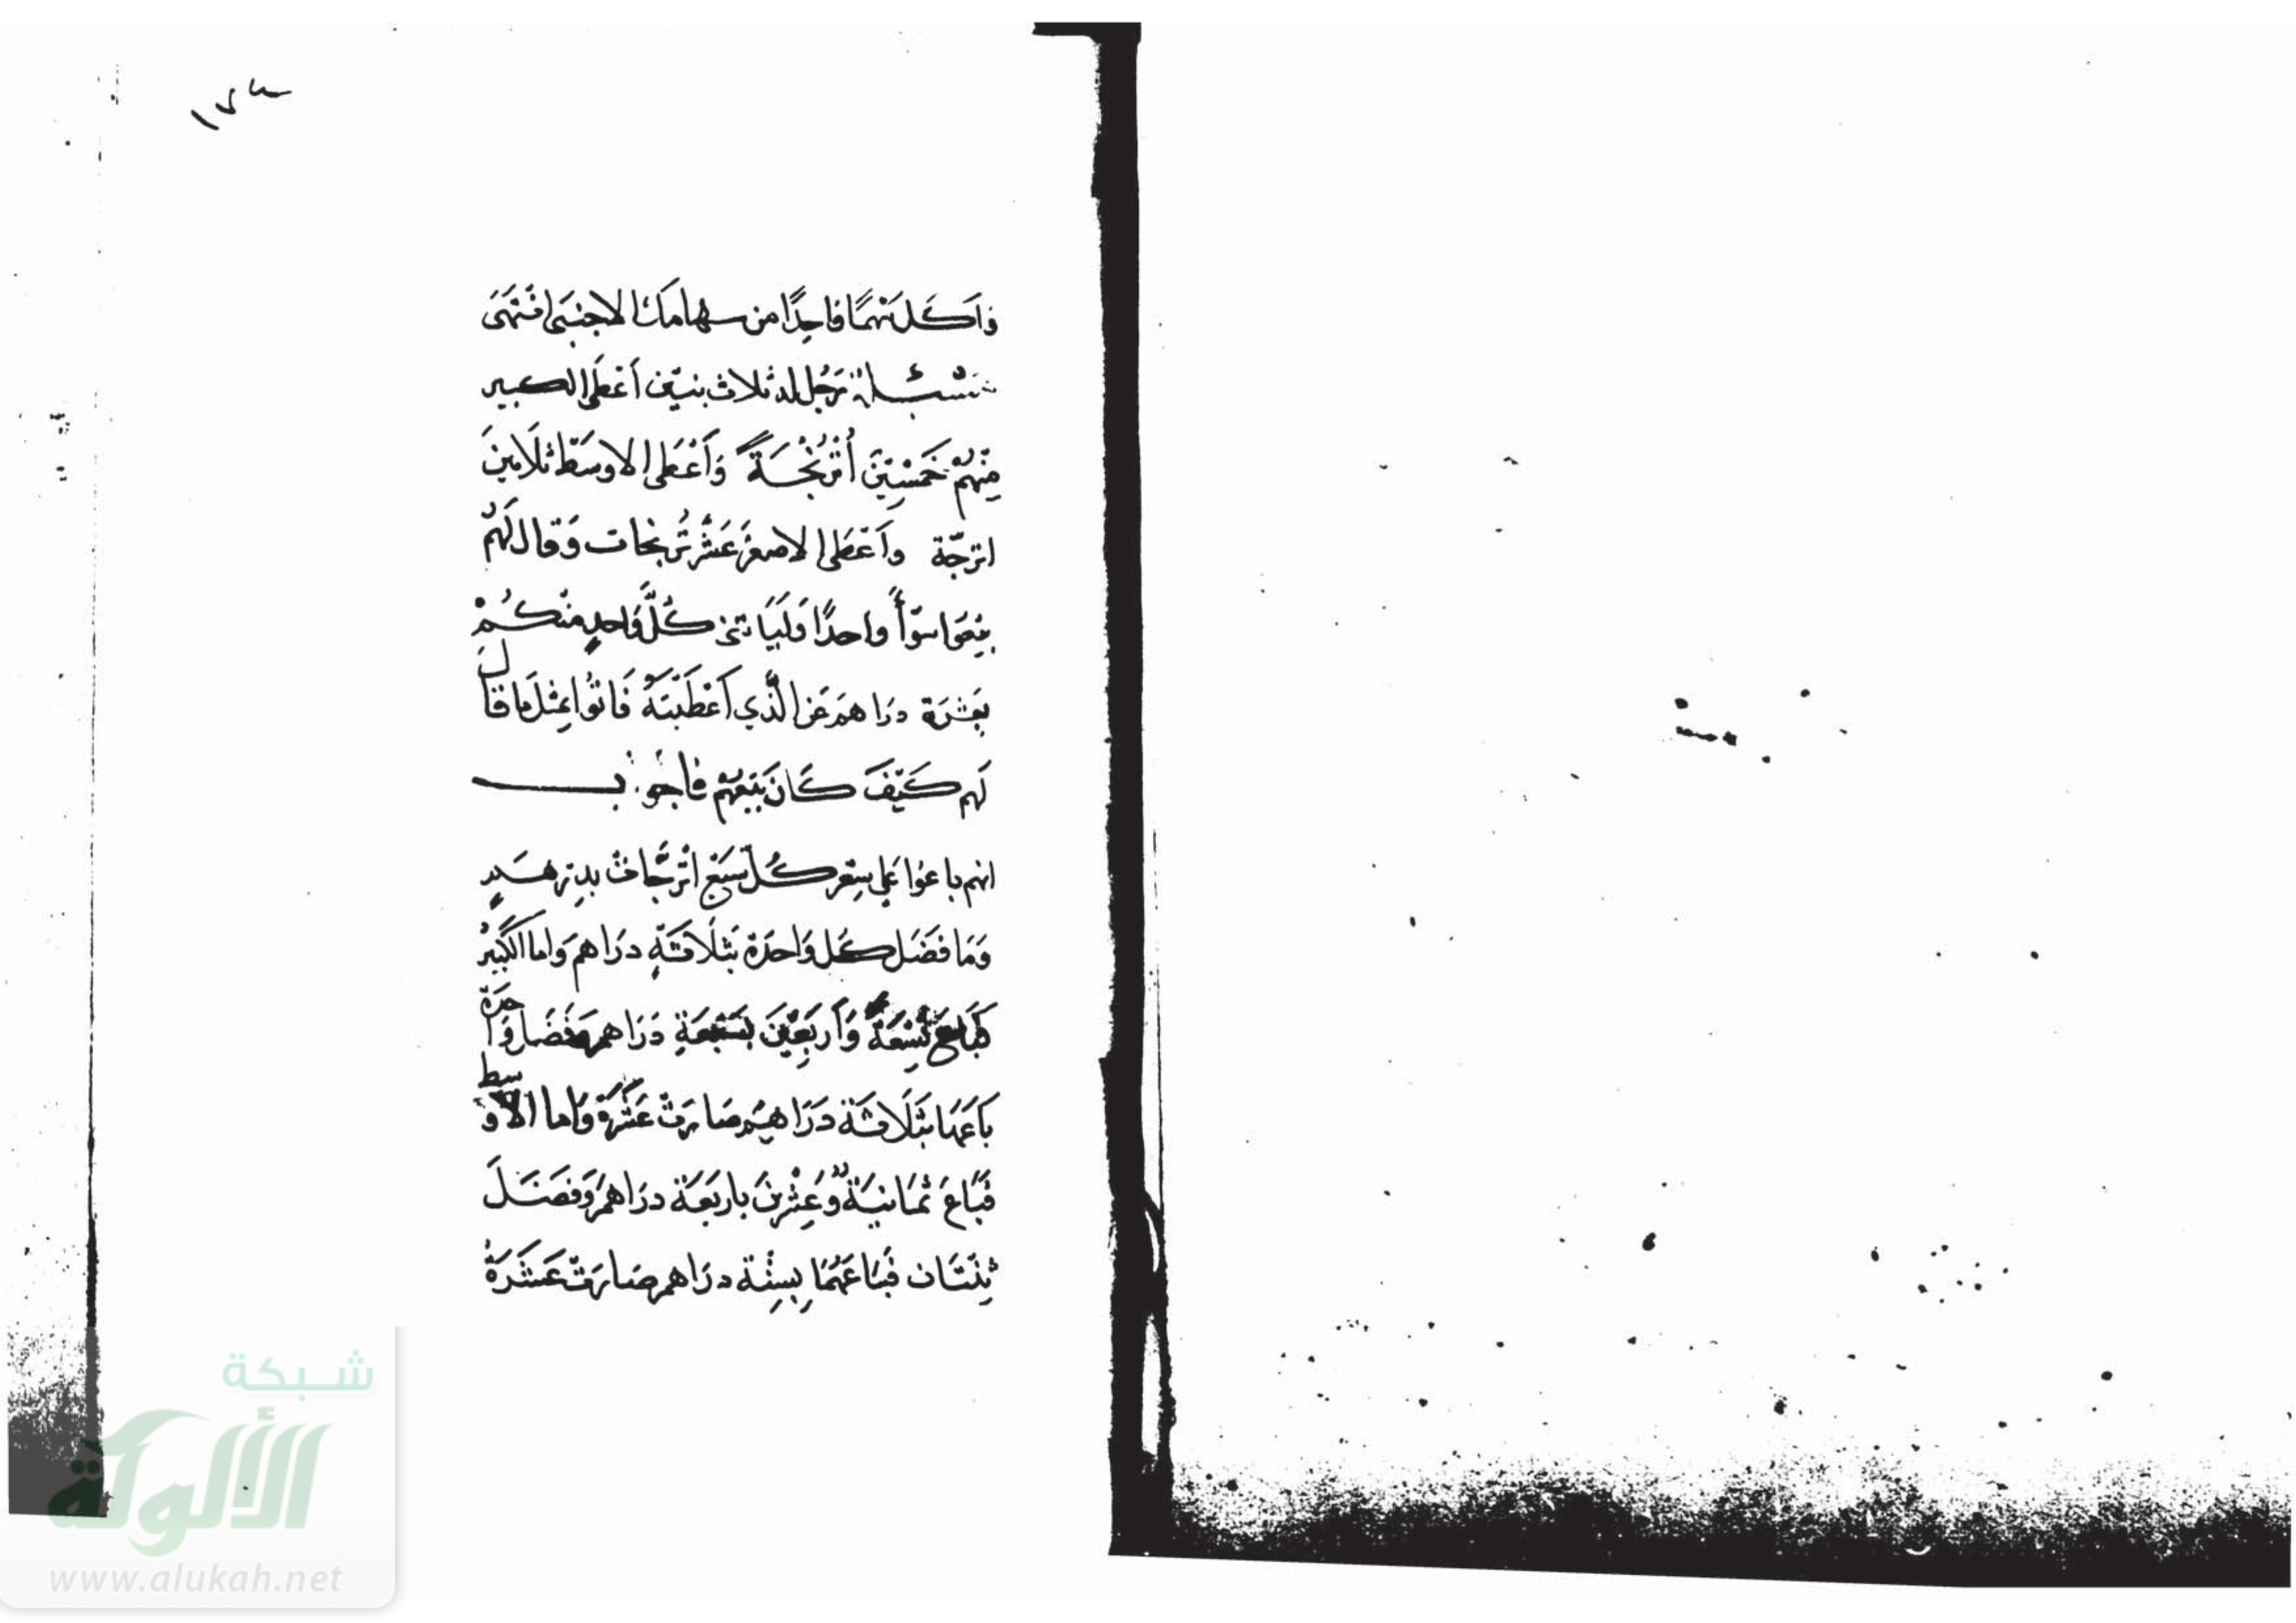 ١٧٣
وَاَكَلَ مْنهُمَا وَاحِدًا من سهامك الاجنبى انتهَى
مَسْئلة رَجُل له ثلاث بنيّن أعْطَى الكبير
مِنْهُمْ خَمْسْيِنَ أُتْرُنْجُةً وَأعْطَى الاوسَط ثلَاثينَ
اترجّة وأعْطَى الاصغَرْ عَشْر تُرنجات وَقال لَهُمْ
بيْعُوا سَوّأً واحدًا وَليَا تنى كُلَّ وَاحدٍ منْكُمْ
بعَشْرَة درَا هم عَن الَّذي أعْطَيْتَهُ فَاتوُا بمِثْلَ مَا قالَ
لَهم كَيْفَ كَانَ بَيْعَهُمْ فاجوَ ب
انهم باعوُا عَلى سِعْر كُلّ سَبَعْ اتْرجَّاتْ بدِرهَمٍ
وَمَا فضَل كل وَاحدَة بثَلَاثَةٍ درَاهم وَاما الكَبِيْرُ
فبَاعَ تسْعَةً وَأربَعِيْنَ بسَبْعَةٍ دَرَاهم وَفضَل وَاحدَة
بَاعَهَا بثَلَاثَة دَرَاهِمْ صَارَتْ عَشْرَةَ وَاما الاَوسط
فبَاعَ ثمَانيَةُ وَعِشْرينَ باربَعَة درَاهم وَفضَلَ
ثِنْتَان فبَاعَهُمَا بِسِتْة درَاهم صَارَتْ عَشَرَةُ
شبكة
الألوكة
www.alukah.net